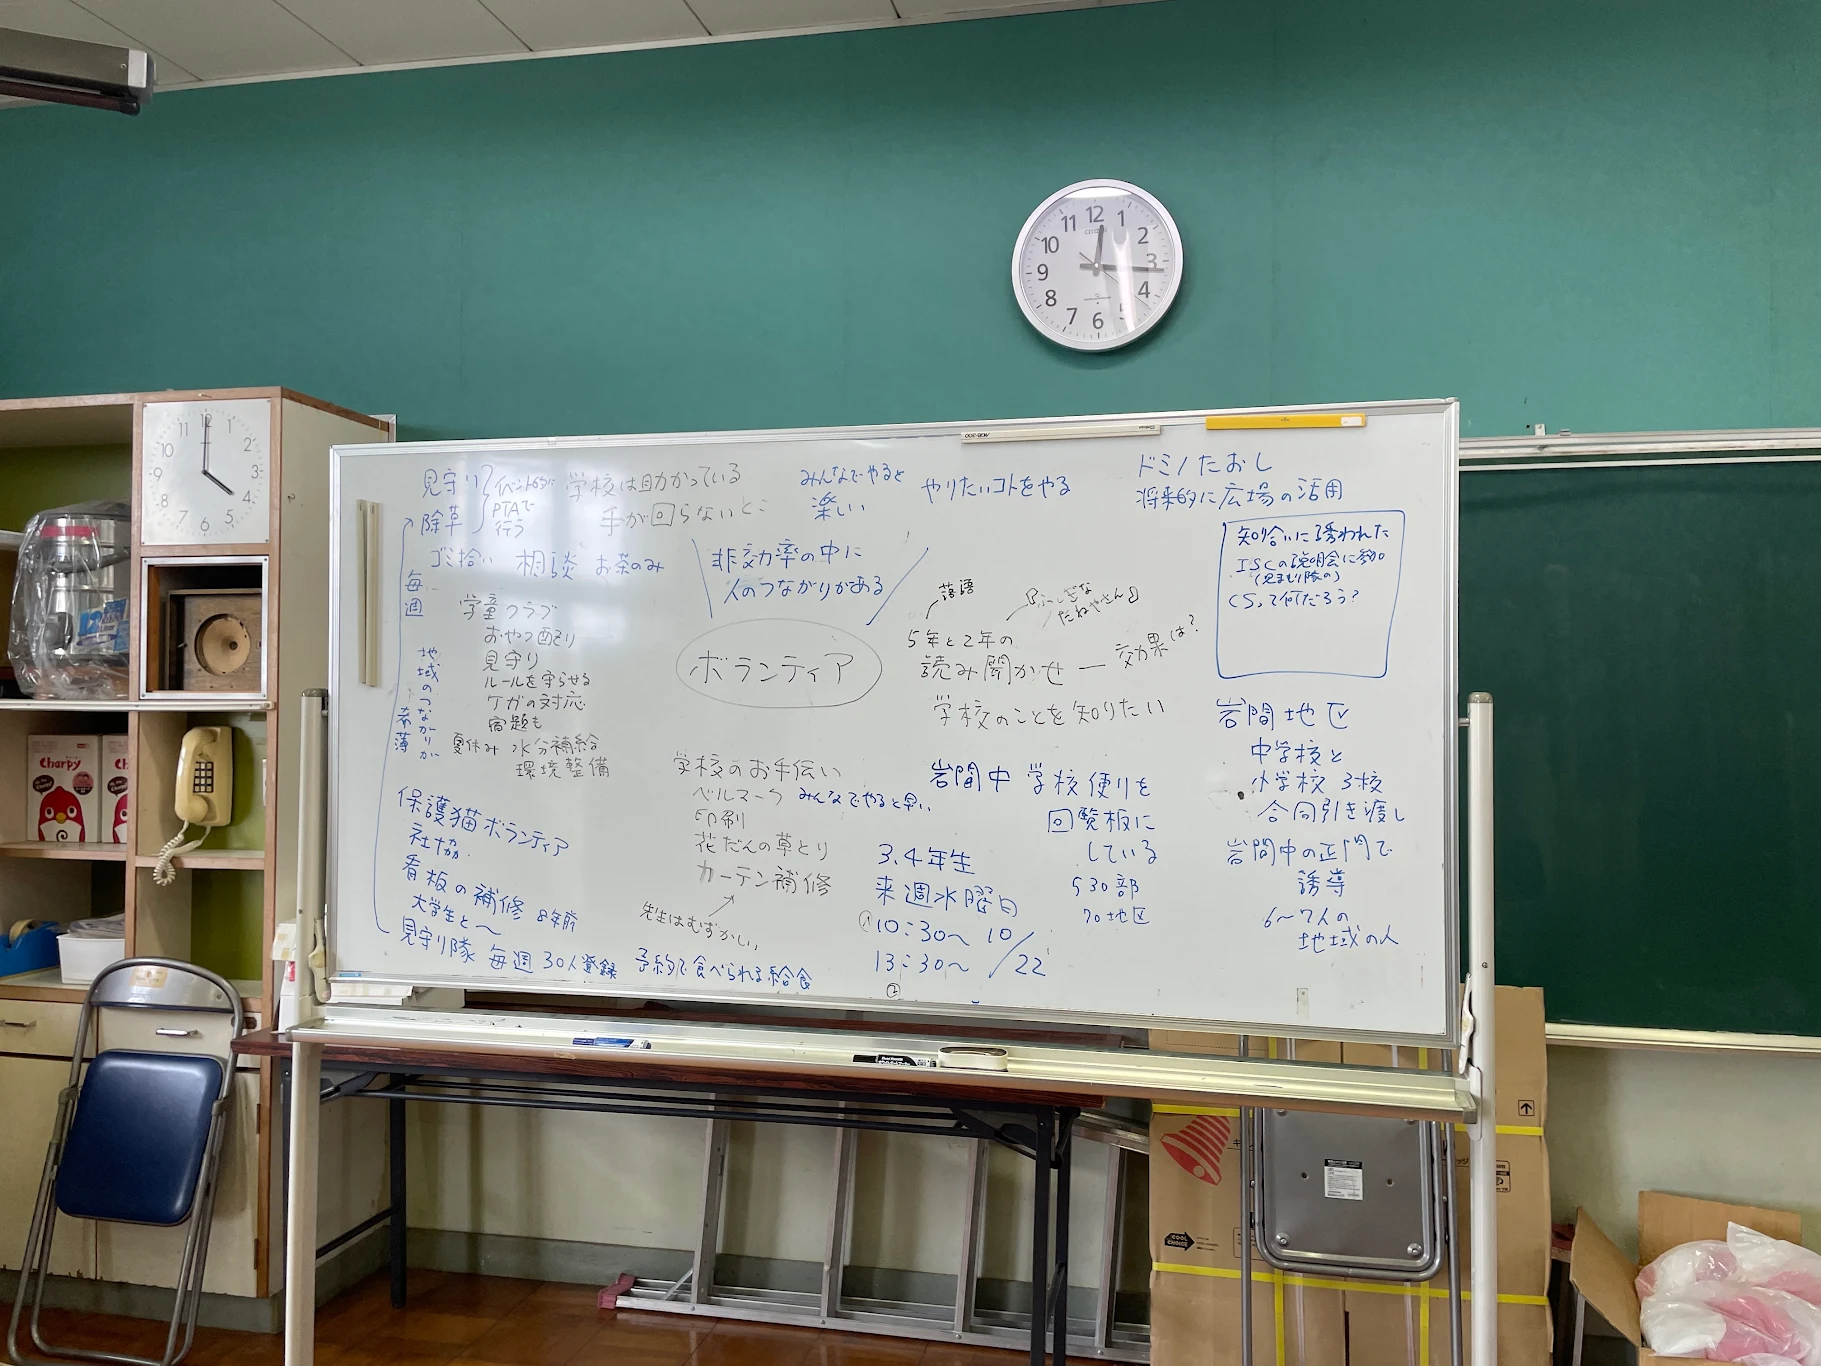 見守り
除草
イベント的に
PTAで
行う
学校は助かっている
手が回らないとこ
みんなでやると
楽しい
やりたいコトをやる
ドミノたおし
将来的に広場の活用
ゴミ拾い 相談 お茶のみ
非効率の中に
人のつながりがある
知り合いに誘われた
ISCの説明会に参加
(見まもり隊の)
CSって何だろう?
毎週
地域のつながりが
希薄
学童クラブ
おやつ配り
見守り
ルールを守らせる
ケガの対応
宿題も
夏休み 水分補給
環境整備
ボランティア
落語
『ふしぎな
たねやさん』
5年と2年の
読み聞かせ ー 効果は?
学校のことを知りたい
保護猫ボランティア
社協
看板の補修 8年前
大学生と〜
見守り隊 毎週 30人登録
予約で食べられる給食
学校のお手伝い
ベルマーク みんなでやると早い
印刷
花だんの草とり
カーテン補修
先生はむずかしい
岩間中 学校便りを
回覧板に
している
530部
70地区
3.4年生
来週水曜日
10:30〜 10/22
13:30〜
②
岩間地区
中学校と
小学校 3校
合同引き渡し
岩間中の正門で
誘導
6〜7人の
地域の人
12 1 2 3 4 5 6 7 8 9 10 11
CITIZEN
12 1 2 3 4 5 6 7 8 9 10 11
Charpy
COOL CHOICE